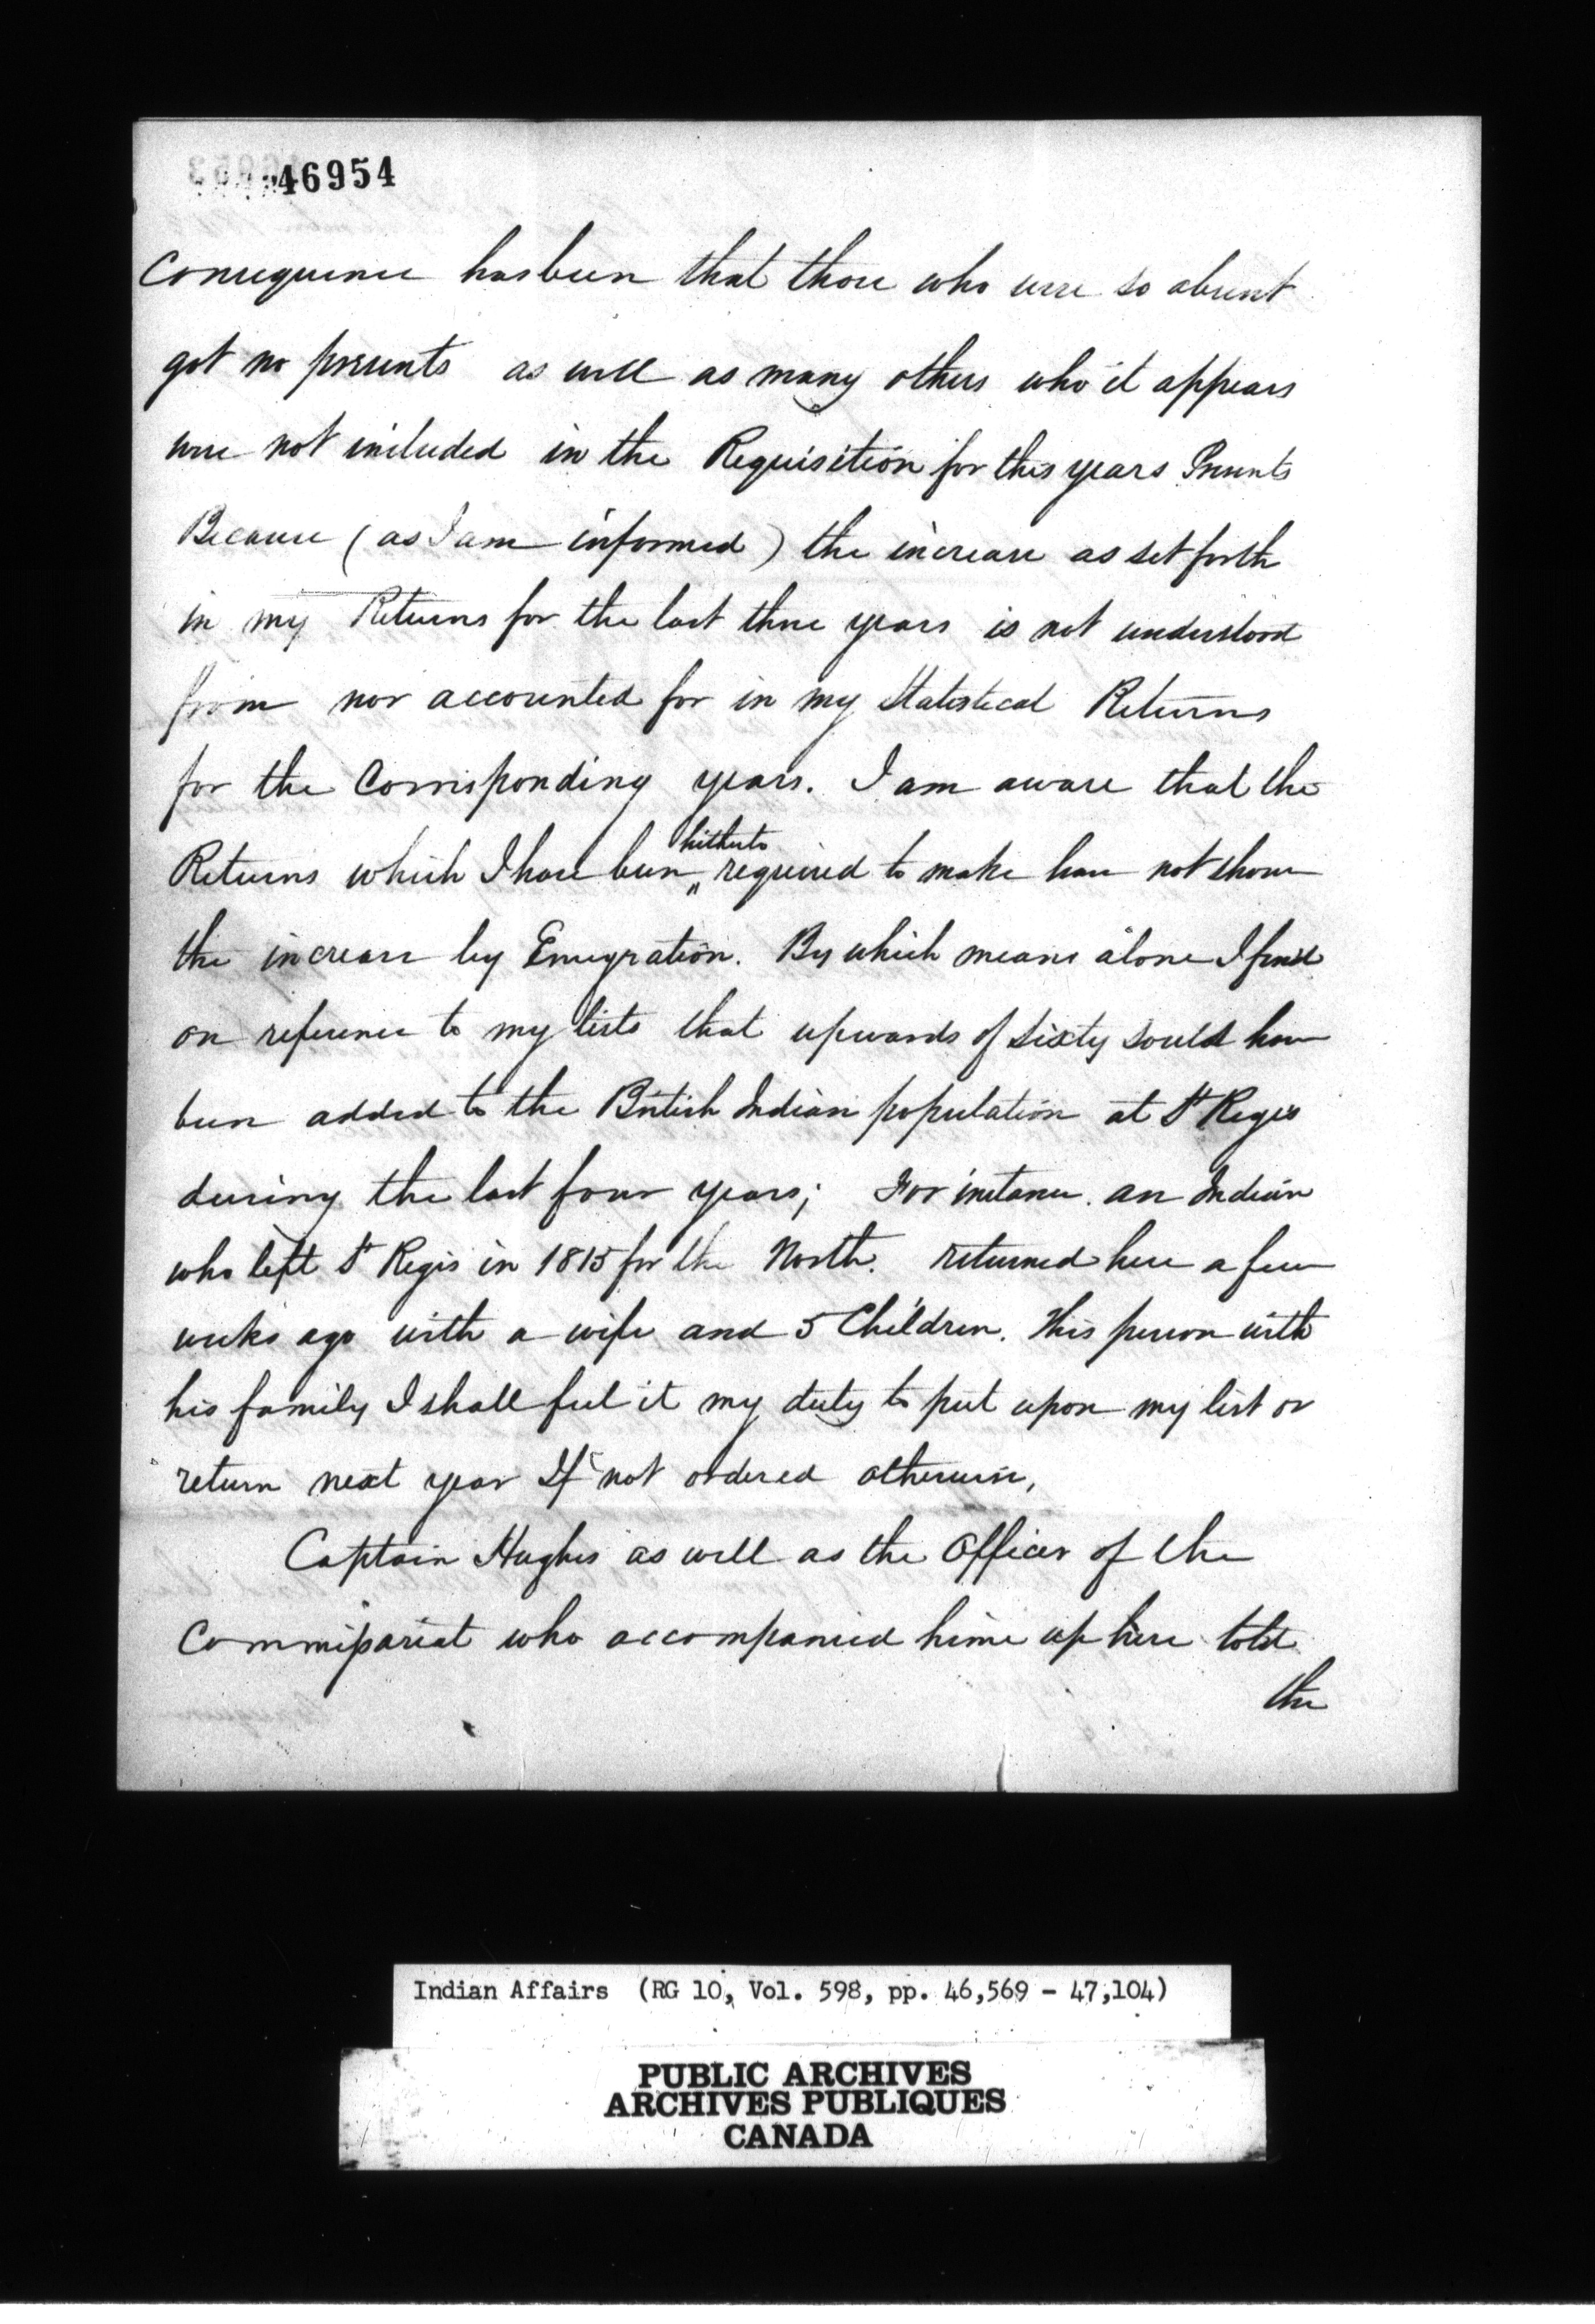 46954
Consequence has been that those who were so absent
got no presents as well as many others who it appears
were not included in the Requisition for this years Presents
Because (as I am informed) the increase as set forth
in my Returns for the last three years is not understood
from nor accounted for in my Statistical Returns
for the Corrisponding years. I am aware that the
hitherto
Returns which I have been " required to make have not shown
the increase by Emigration. By which means alone I find
on reference to my lists that upwards of sixty souls have
been added to the British Indian population at St Regis
during the last four years; For instance. an Indian
who left St Regis in 1815 for the North. returned here a few
weeks ago with a wife and 5 Children. This person with
his family I shall feel it my duty to put upon my list or
return next year If not ordered otherwise,
Captain Hughes as well as the Officer of the
Commissariat who accompanied hime up here told
the
Indian Affairs (RG 10, Vol. 598, pp. 46,569 - 47,104)
PUBLIC ARCHIVES
ARCHIVES PUBLIQUES
CANADA